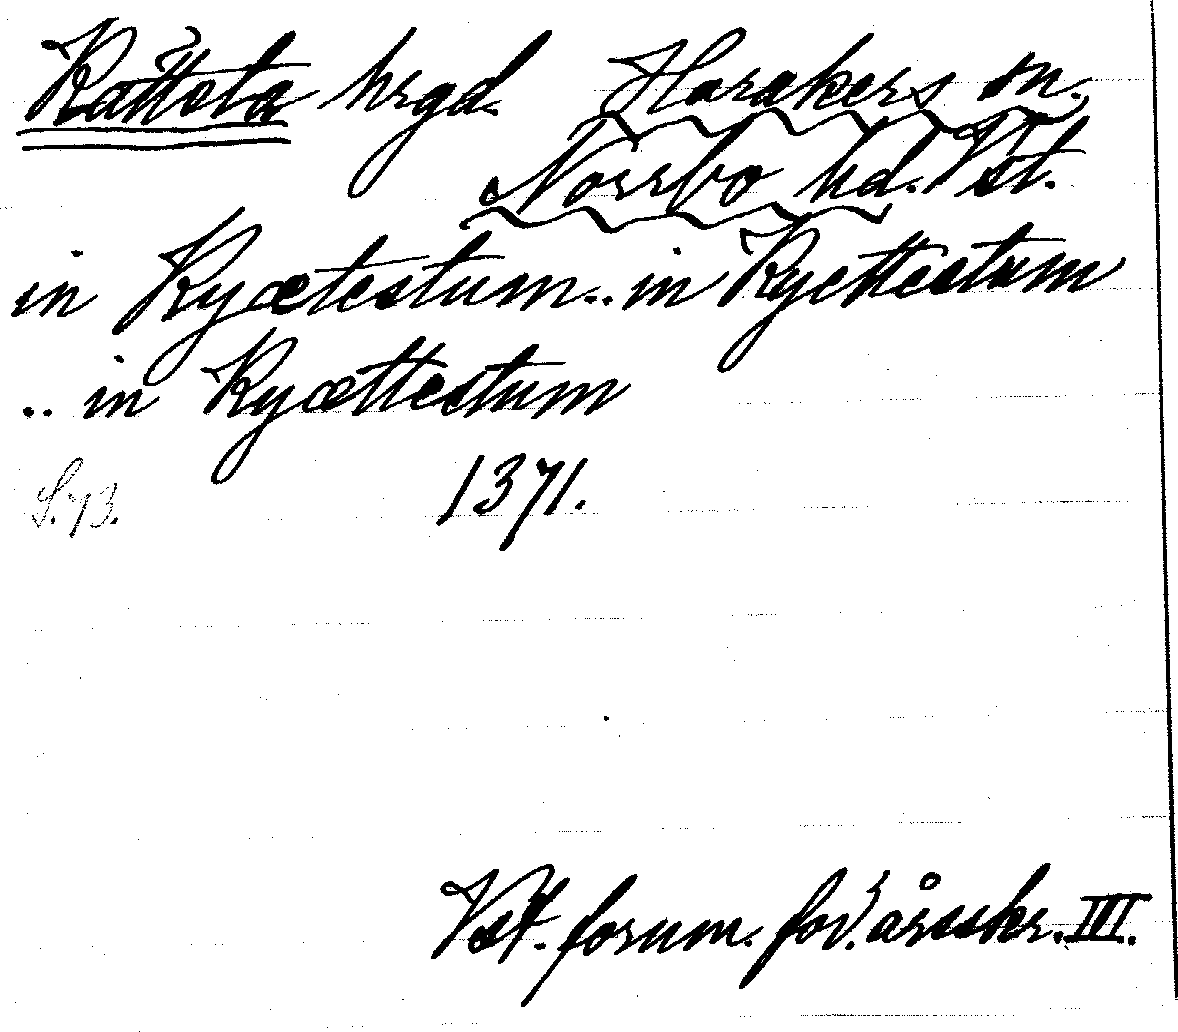 Kättsta hrgd. Harakers sn.
Norrbo hd. Vst.
in Kyætestum .. in Kyettestum
.. in Kyættestum
S. 73. 1371.
Vst. fornm. för:s årsskr. III.